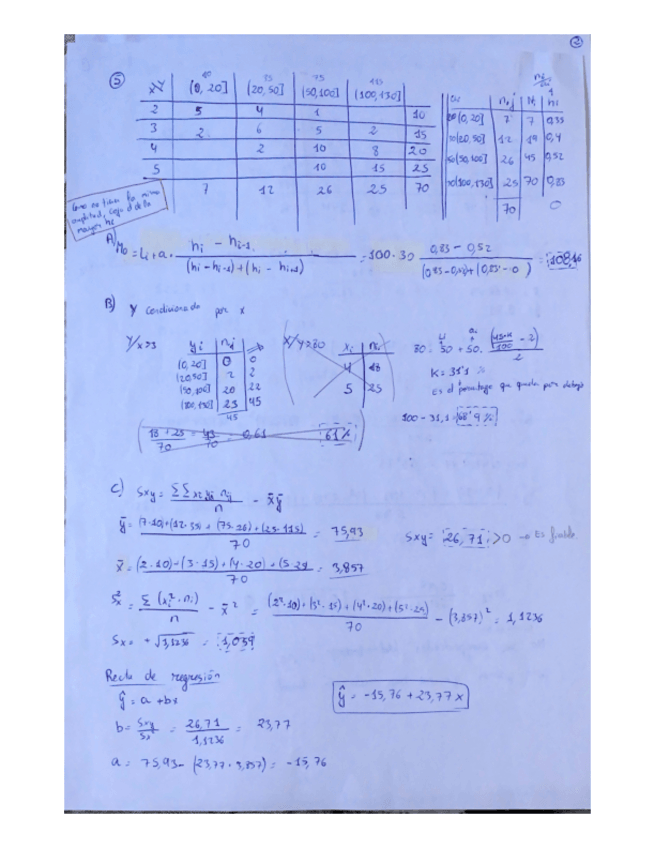 2
5
10 35 75 115
X\Y (0, 20] (20,50] (50,100] (100,130]
2 5 4 1 10
3 2 6 5 2 15
4 2 10 8 20
5 10 15 25
7 12 26 25 70
ai n.j Ni hi
20(0,20] 7 7 0,35
30(20,50] 12 19 0,4
50(50,100] 26 45 0,52
30(100,130] 25 70 0,83
70 0
Como no tiene la misma
amplitud, cojo el de la
mayor hi
A)
Mo = Li + a. hi - hi-1 / (hi - hi-1) + (hi - hi+1) = 100 · 30 0,83 - 0,52 / (0,83 - 0,52) + (0,83 - 0) = 108,16
B) Y condicionado por x
Y/x≥3 yi nj
(0, 20] 0 0
(20,50] 2 2
(50,100] 20 22
(100,130] 23 45
45
X/Y≥80 xi ni
4 18
5 25
18 + 25 / 70 = 43 / 70 = 0,61 61%
K = 31'1 %
Es el porcentaje que queda por debajo
100 - 31,1 = 68'9 %
C) Sxy = ΣΣ xi yi nij / n - x̄ȳ
ȳ = (7·10)+(12·35)+(75·26)+(25·115) / 70 = 75,93
Sxy = 26,71 > 0 → Es fiable.
x̄ = (2·10)+(3·15)+(4·20)+(5·25) / 70 = 3,857
S²x = Σ (xi²·ni) / n - x̄² = (2²·10)+(3²·15)+(4²·20)+(5²·25) / 70 - (3,857)² = 1,1236
Sx = +√1,1236 = 1,059
Recta de regresión
ŷ = a + bx
ŷ = -15,76 + 23,77 x
b = Sxy / S²x = 26,71 / 1,1236 = 23,77
a = 75,93 - (23,77 · 3,857) = -15,76